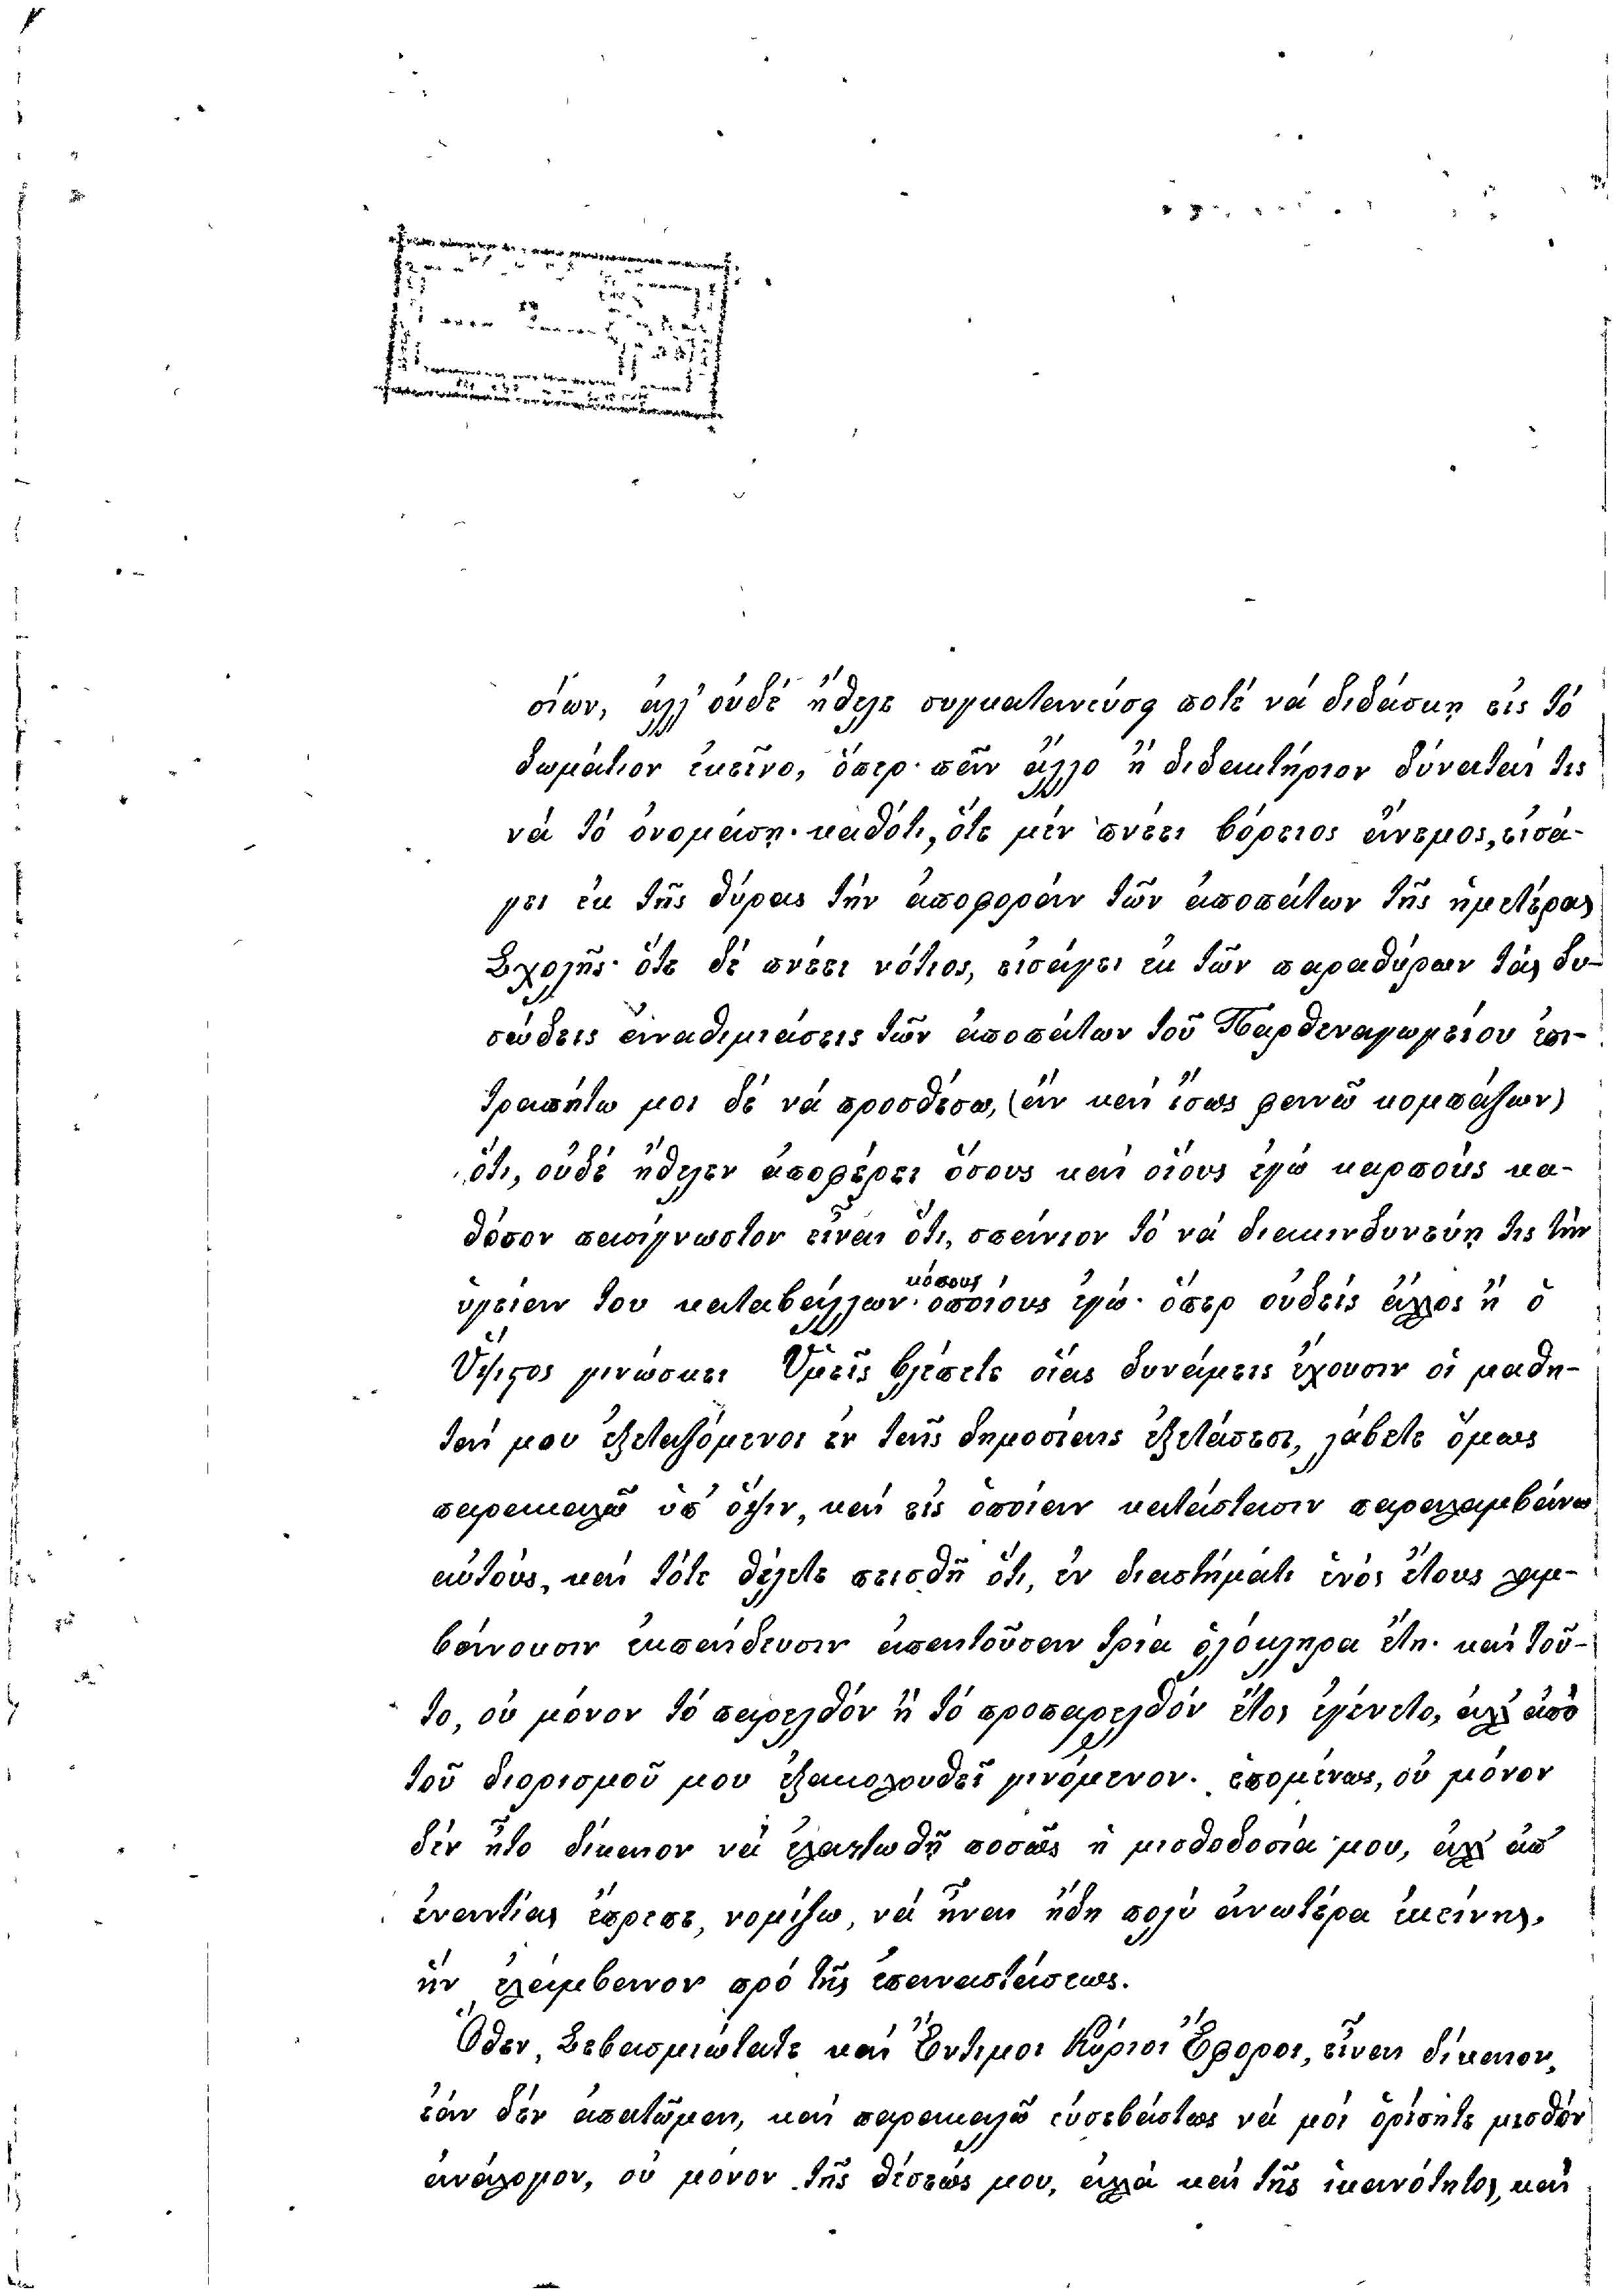 σίων, ἀλλ' οὐδέ ἤθελε συγκατανεύσῃ ποτέ νά διδάσκῃ εἰς τό
δωμάτιον ἐκεῖνο, ὅπερ πᾶν ἄλλο ἤ διδακτήριον δύναταί τις
νά τό ὀνομάσῃ· καθότι, ὅτε μέν πνέει βόρειος ἄνεμος, εἰσά-
γει ἐκ τῆς θύρας τήν ἀποφοράν τῶν ἀποπάτων τῆς ἡμετέρας
Σχολῆς· ὅτε δέ πνέει νότιος, εἰσάγει ἐκ τῶν παραθύρων τάς δυ-
σώδεις ἀναθυμιάσεις τῶν ἀποπάτων τοῦ Παρθεναγωγείου ἐπι-
τραπήτω μοι δέ νά προσθέσω, (ἄν καί ἴσως φανῶ κομπάζων)
ὅτι, οὐδέ ἤθελεν ἀποφέρει ὅσους καί οἵους ἐγώ καρπούς κα-
θόσον πασίγνωστον εἶναι ὅτι, σπάνιον τό νά διακινδυνεύῃ τις τήν
ὑγείαν του καταβάλλων κόπους ὁποίους ἐγώ· ὅπερ οὐδείς ἄλλος ἤ ὁ
Ὕψιστος γινώσκει Ὑμεῖς βλέπετε οἵας δυνάμεις ἔχουσιν οἱ μαθη-
ταί μου ἐξεταζόμενοι ἐν ταῖς δημοσίαις ἐξετάσεσι, λάβετε ὅμως
παρακαλῶ ὑπ' ὄψιν, καί εἰς ὁποίαν κατάστασιν παραλαμβάνω
αὐτούς, καί τότε θέλετε πεισθῆ ὅτι, ἐν διαστήματι ἑνός ἔτους λαμ-
βάνουσιν ἐκπαίδευσιν ἀπαιτοῦσαν τρία ὁλόκληρα ἔτη· καί τοῦ-
το, οὐ μόνον τό παρελθόν ἤ τό προπαρελθόν ἔτος ἐγένετο, ἀλλ' ἀπό
τοῦ διορισμοῦ μου ἐξακολουθεῖ γινόμενον· ἑπομένως, οὐ μόνον
δέν ἦτο δίκαιον νά ἐλαττωθῇ ποσῶς ἡ μισθοδοσία μου, ἀλλ' ἀπ'
ἐναντίας ἔπρεπε, νομίζω, νά ἦναι ἤδη πολύ ἀνωτέρα ἐκείνης,
ἥν ἐλάμβανον πρό τῆς ἐπαναστάσεως.
Ὅθεν, Σεβασμιώτατε καί Ἔντιμοι Κύριοι Ἔφοροι, εἶναι δίκαιον,
ἐάν δέν ἀπατῶμαι, καί παρακαλῶ εὐσεβάστως νά μοί ὁρίσητε μισθόν
ἀνάλογον, οὐ μόνον τῆς θέσεώς μου, ἀλλά καί τῆς ἱκανότητος, καί